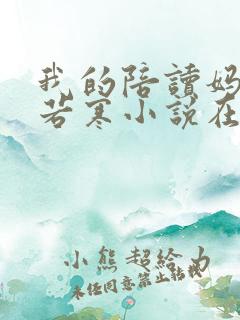 我的陪讀妈
若寒小说在
小熊超给力
未经同意禁止转载